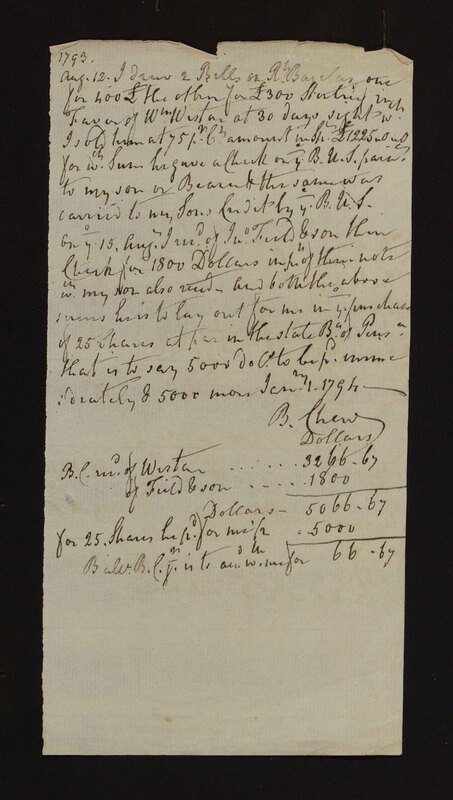 1793.
Aug. 12. I drew 2 Bills on Rt Barclay one
for 400£ the other for £300 Sterling
Favor of Wm Wistar at 30 days sight
I sold him at 75 p Ct amount £1225..0..0
for wch Sum he gave a Check on ye B. U. S.
to my son or Bearer & the same was
carried to my Sons Credit by ye B. U. S.
On ye 15. Augt I recd of Jno Field & son their
Check for 1800 Dollars in pt of their note
wch my son also recd and both these above
sums he is to lay out for me in ye purchase
of 25 Shares at par in the State Bk of Penn
that is to say 5000 dolls to be pd imme
diately & 5000 more Jany 1. 1794
B. Chew
Dollars
B. C. recd of Wistar ...... 3266-67
of Field & son ...... 1800
Dollars - 5066-67
for 25. Shares he pd for me - 5000
B. C. jr is to me for 66-67